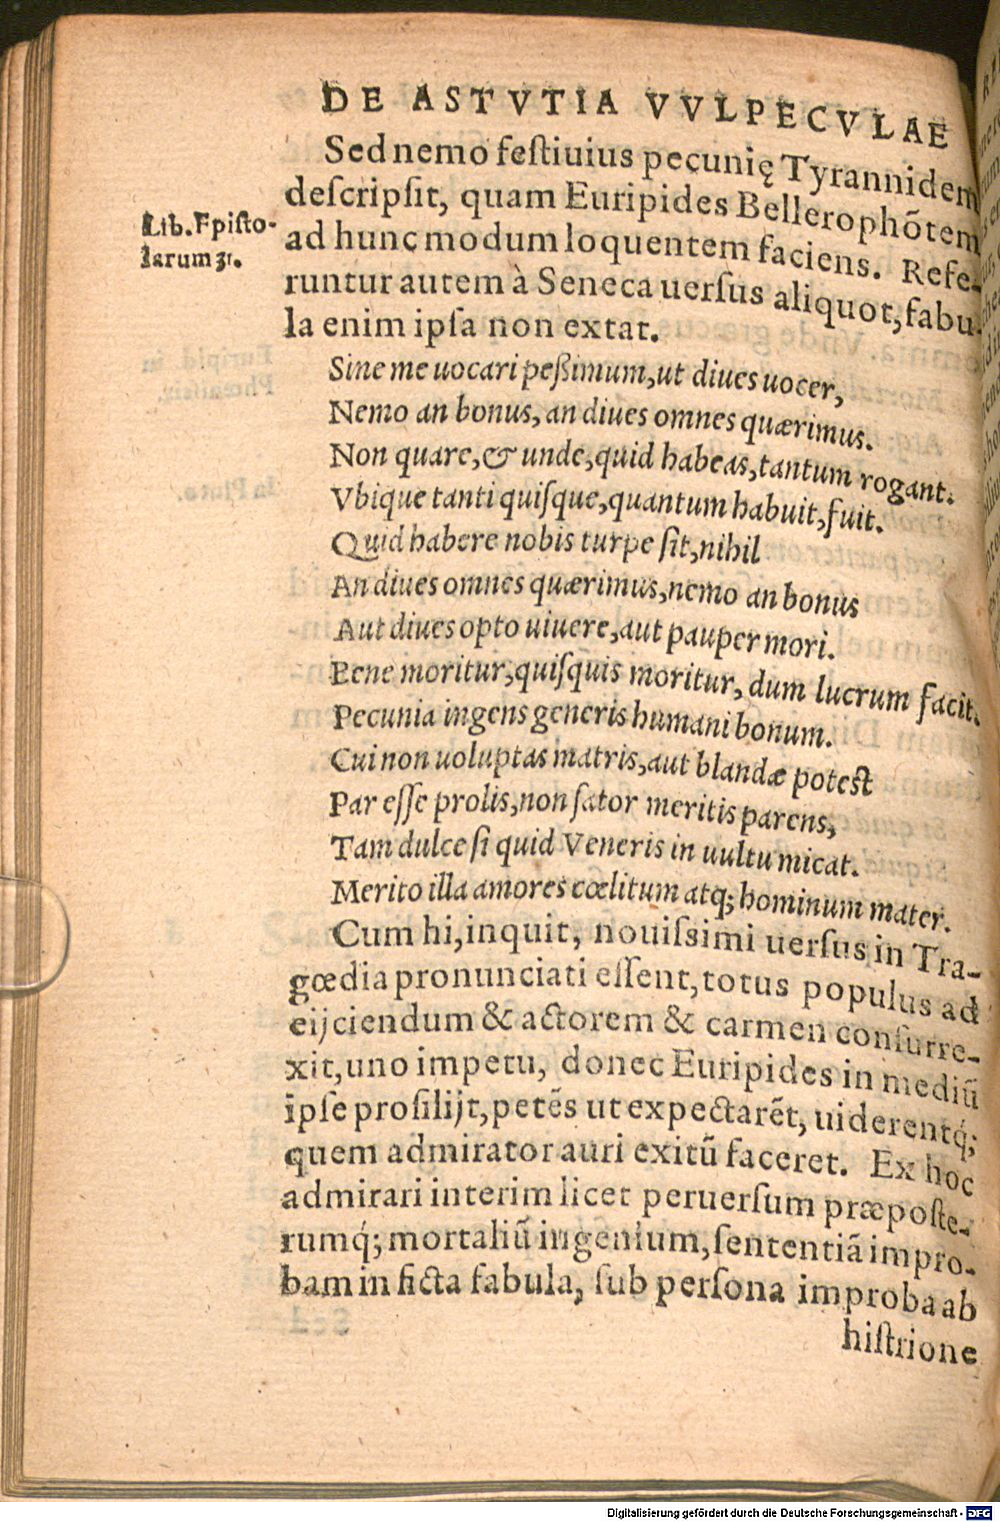 DE ASTVTIA VVLPECVLAE
Sed nemo festiuius pecunię Tyrannidem
descripsit, quam Euripides Bellerophõtem
Lib. Episto-
larum 31.
ad hunc modum loquentem faciens. Refe-
runtur autem à Seneca uersus aliquot, fabu-
la enim ipsa non extat.
Sine me uocari peßimum, ut diues uocer,
Nemo an bonus, an diues omnes quærimus.
Non quare, & unde, quid habeas, tantum rogant.
Vbique tanti quisque, quantum habuit, fuit.
Quid habere nobis turpe sit, nihil
An diues omnes quærimus, nemo an bonus
Aut diues opto uiuere, aut pauper mori.
Bene moritur, quisquis moritur, dum lucrum facit.
Pecunia ingens generis humani bonum.
Cui non uoluptas matris, aut blandæ potest
Par esse prolis, non sator meritis parens,
Tam dulce si quid Veneris in uultu micat.
Merito illa amores cœlitum atq; hominum mater.
Cum hi, inquit, nouissimi uersus in Tra-
gœdia pronunciati essent, totus populus ad
eijciendum & actorem & carmen consurre-
xit, uno impetu, donec Euripides in mediũ
ipse prosilijt, petẽs ut expectarẽt, uiderentq́;
quem admirator auri exitũ faceret. Ex hoc
admirari interim licet peruersum præposte-
rumq́; mortaliũ ingenium, sententiã impro-
bam in ficta fabula, sub persona improba ab
histrione
Digitalisierung gefördert durch die Deutsche Forschungsgemeinschaft - DFG